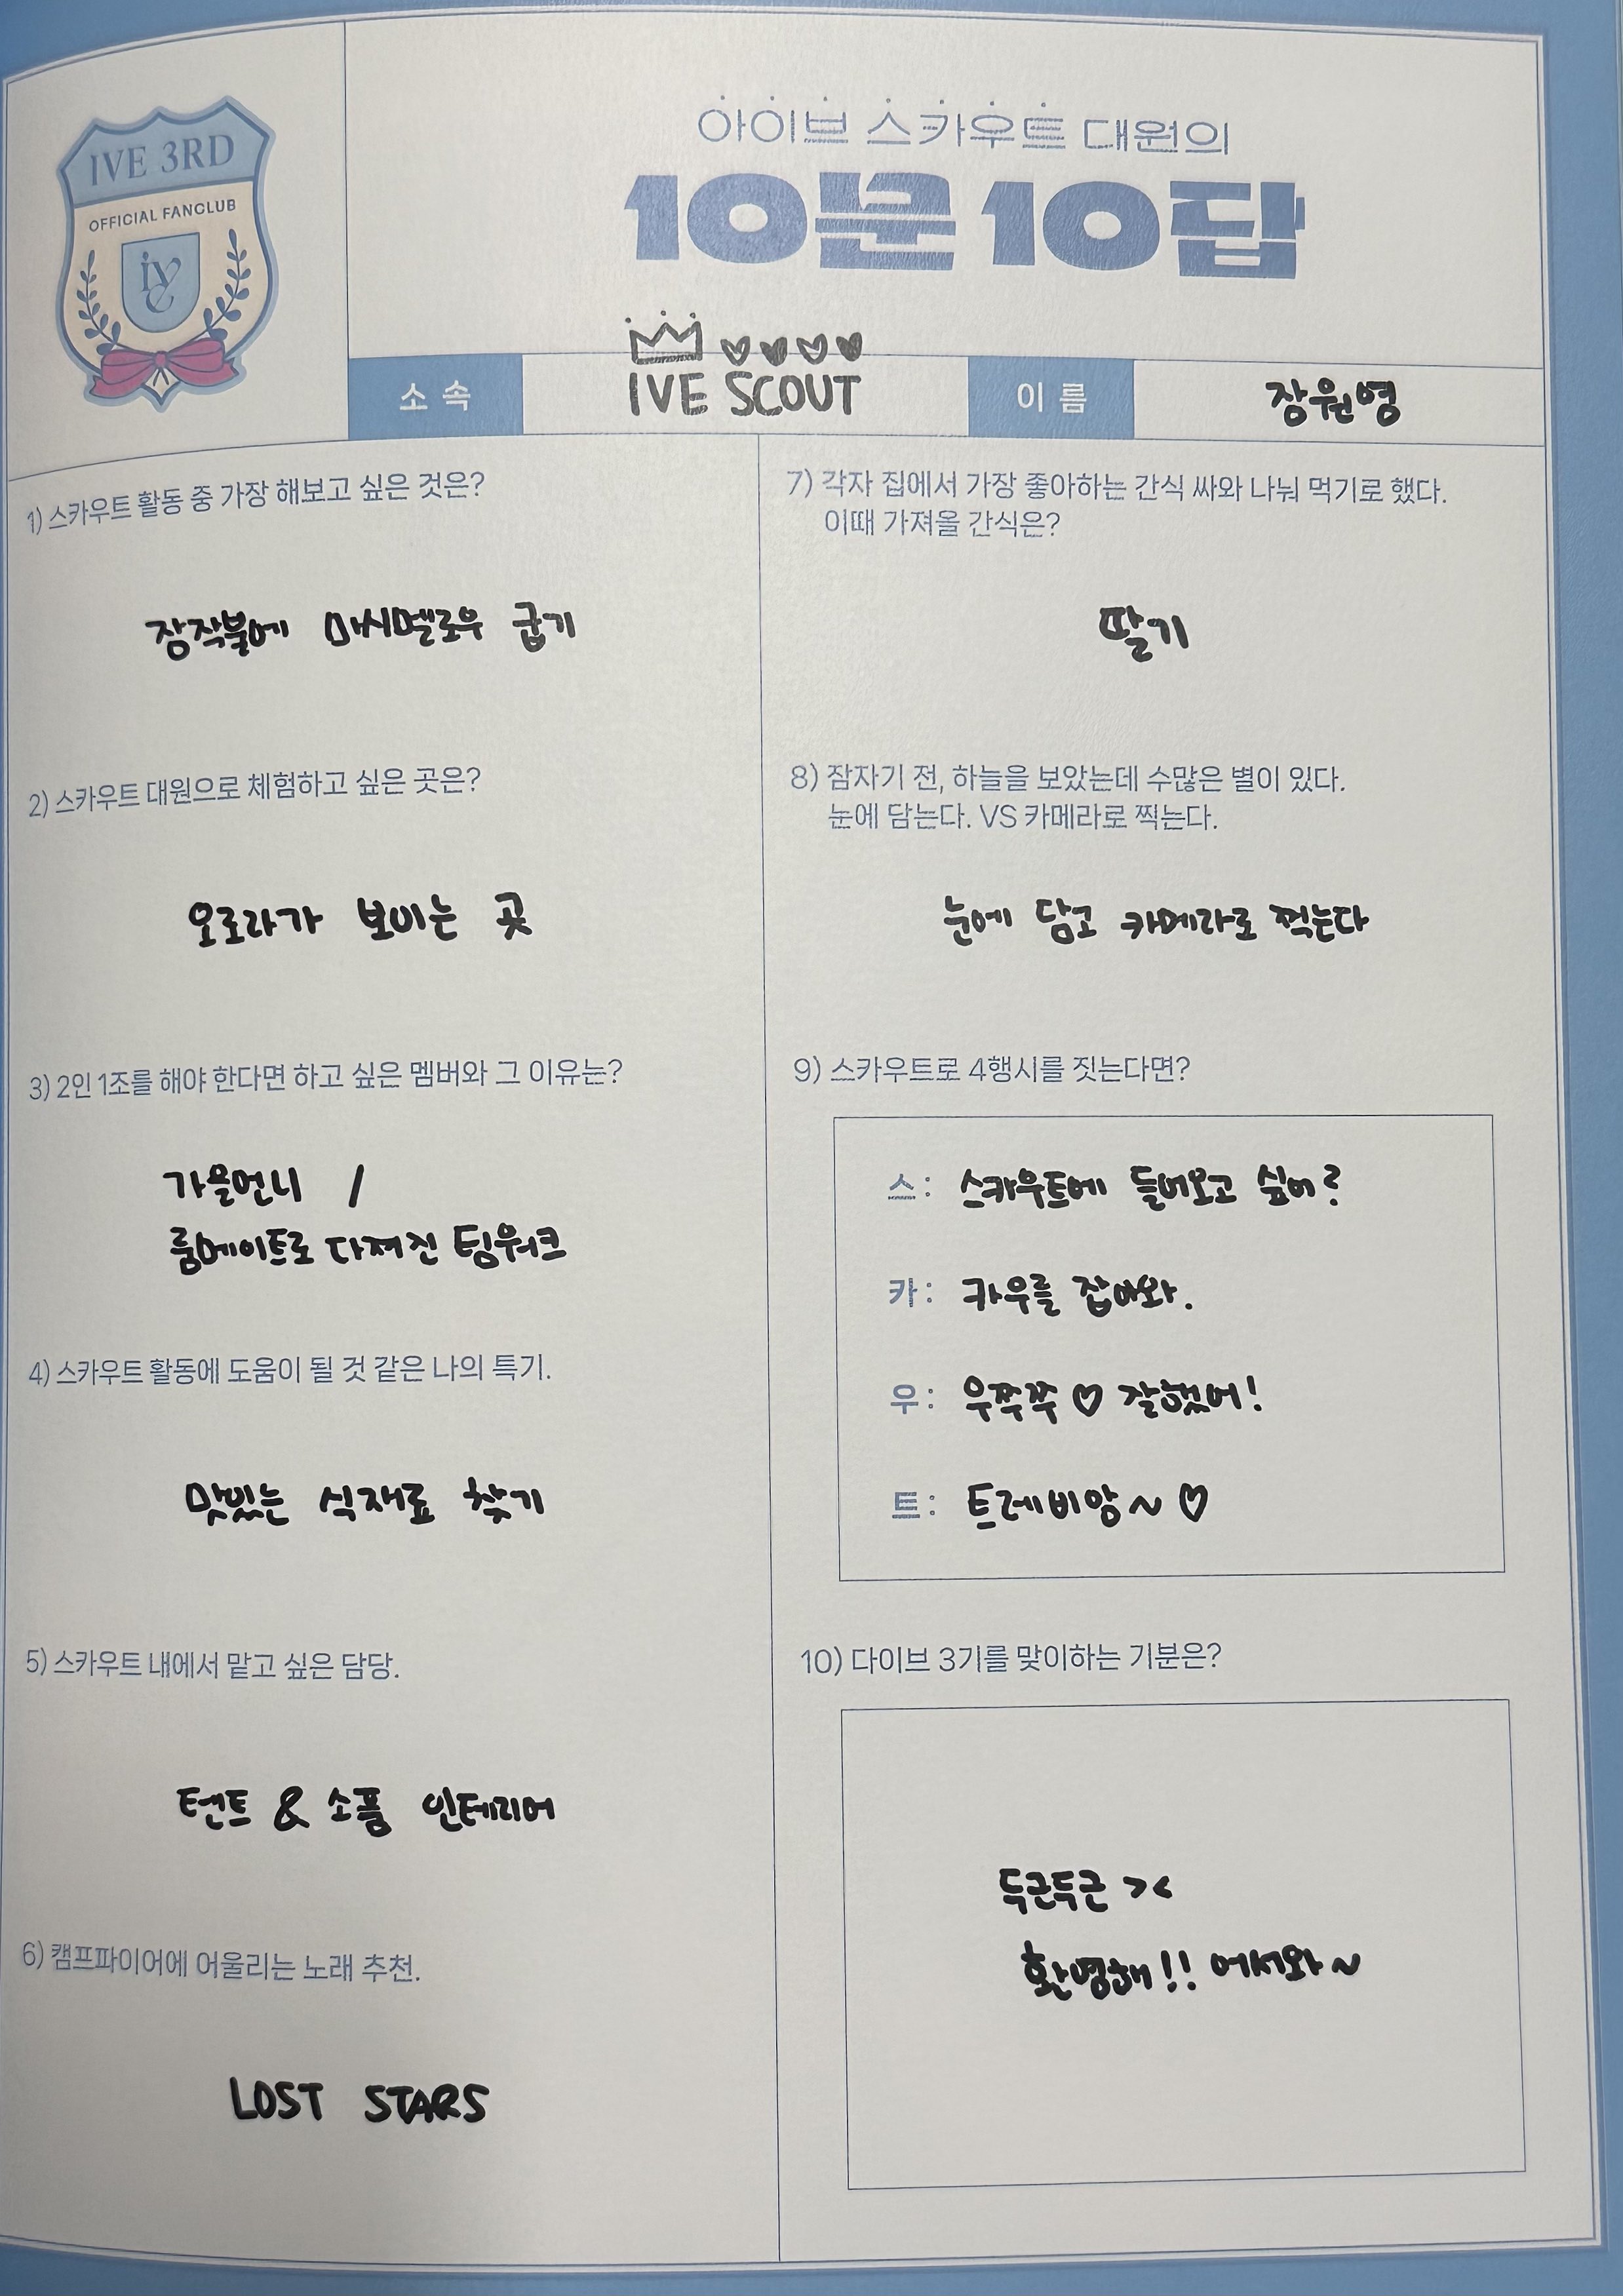 IVE 3RD
OFFICIAL FANCLUB
ive
아이브 스카우트 대원의
10문 10답
소속
IVE SCOUT
이름
장원영
1) 스카우트 활동 중 가장 해보고 싶은 것은?
장작불에 마시멜로우 굽기
2) 스카우트 대원으로 체험하고 싶은 곳은?
오로라가 보이는 곳
3) 2인 1조를 해야 한다면 하고 싶은 멤버와 그 이유는?
가을언니 /
룸메이트로 다져진 팀워크
4) 스카우트 활동에 도움이 될 것 같은 나의 특기.
맛있는 식재료 찾기
5) 스카우트 내에서 맡고 싶은 담당.
텐트 & 소품 인테리어
6) 캠프파이어에 어울리는 노래 추천.
LOST STARS
7) 각자 집에서 가장 좋아하는 간식 싸와 나눠 먹기로 했다.
이때 가져올 간식은?
딸기
8) 잠자기 전, 하늘을 보았는데 수많은 별이 있다.
눈에 담는다. VS 카메라로 찍는다.
눈에 담고 카메라로 찍는다
9) 스카우트로 4행시를 짓는다면?
스: 스카우트에 들어오고 싶어?
카: 카우를 잡아와.
우: 우쭈쭈 ♡ 잘했어!
트: 트레비앙~ ♡
10) 다이브 3기를 맞이하는 기분은?
두근두근 ><
환영해!! 어서와~